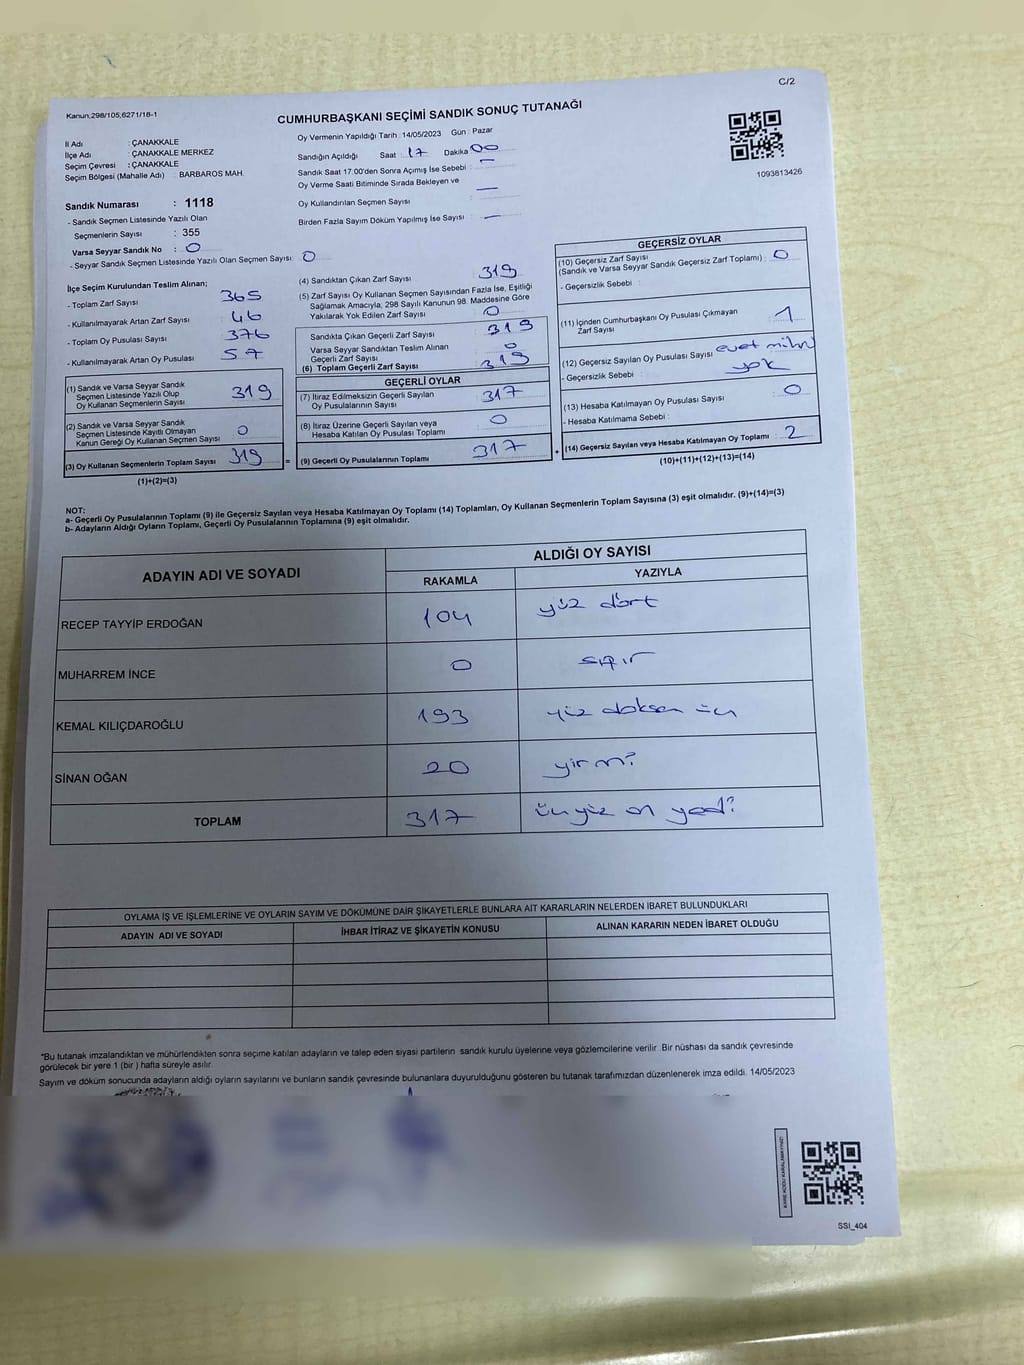 C/2
Kanun;298/105,6271/18-1
CUMHURBAŞKANI SEÇİMİ SANDIK SONUÇ TUTANAĞI
1093813426
İl Adı : ÇANAKKALE
İlçe Adı : ÇANAKKALE MERKEZ
Seçim Çevresi : ÇANAKKALE
Seçim Bölgesi (Mahalle Adı) : BARBAROS MAH.
Sandık Numarası : 1118
- Sandık Seçmen Listesinde Yazılı Olan
Seçmenlerin Sayısı : 355
Varsa Seyyar Sandık No : 0
- Seyyar Sandık Seçmen Listesinde Yazılı Olan Seçmen Sayısı: 0
Oy Vermenin Yapıldığı Tarih : 14/05/2023 Gün : Pazar
Sandığın Açıldığı Saat : 17 Dakika 00
Sandık Saat 17.00'den Sonra Açımış İse Sebebi : —
Oy Verme Saati Bitiminde Sırada Bekleyen ve
Oy Kullandırılan Seçmen Sayısı : —
Birden Fazla Sayım Döküm Yapılmış İse Sayısı : —
İlçe Seçim Kurulundan Teslim Alınan;
- Toplam Zarf Sayısı : 365
- Kullanılmayarak Artan Zarf Sayısı : 46
- Toplam Oy Pusulası Sayısı : 376
- Kullanılmayarak Artan Oy Pusulası : 57
(1) Sandık ve Varsa Seyyar Sandık
Seçmen Listesinde Yazılı Olup
Oy Kullanan Seçmenlerin Sayısı : 319
(2) Sandık ve Varsa Seyyar Sandık
Seçmen Listesinde Kayıtlı Olmayan
Kanun Gereği Oy Kullanan Seçmen Sayısı : 0
(3) Oy Kullanan Seçmenlerin Toplam Sayısı : 319
(1)+(2)=(3)
=
(4) Sandıktan Çıkan Zarf Sayısı : 319
(5) Zarf Sayısı Oy Kullanan Seçmen Sayısından Fazla İse, Eşitliği
Sağlamak Amacıyla, 298 Sayılı Kanunun 98. Maddesine Göre
Yakılarak Yok Edilen Zarf Sayısı : 0
Sandıkta Çıkan Geçerli Zarf Sayısı : 319
Varsa Seyyar Sandıktan Teslim Alınan
Geçerli Zarf Sayısı : 0
(6) Toplam Geçerli Zarf Sayısı : 319
GEÇERLİ OYLAR
(7) İtiraz Edilmeksizin Geçerli Sayılan
Oy Pusulalarının Sayısı : 317
(8) İtiraz Üzerine Geçerli Sayılan veya
Hesaba Katılan Oy Pusulası Toplamı : 0
(9) Geçerli Oy Pusulalarının Toplamı : 317
+
GEÇERSİZ OYLAR
(10) Geçersiz Zarf Sayısı
(Sandık ve Varsa Seyyar Sandık Geçersiz Zarf Toplamı) : 0
- Geçersizlik Sebebi :
(11) İçinden Cumhurbaşkanı Oy Pusulası Çıkmayan
Zarf Sayısı : 1
(12) Geçersiz Sayılan Oy Pusulası Sayısı : evet mührü
- Geçersizlik Sebebi : yok
(13) Hesaba Katılmayan Oy Pusulası Sayısı : 0
- Hesaba Katılmama Sebebi :
(14) Geçersiz Sayılan veya Hesaba Katılmayan Oy Toplamı : 2
(10)+(11)+(12)+(13)=(14)
NOT:
a- Geçerli Oy Pusulalarının Toplamı (9) ile Geçersiz Sayılan veya Hesaba Katılmayan Oy Toplamı (14) Toplamları, Oy Kullanan Seçmenlerin Toplam Sayısına (3) eşit olmalıdır. (9)+(14)=(3)
b- Adayların Aldığı Oyların Toplamı, Geçerli Oy Pusulalarının Toplamına (9) eşit olmalıdır.
ADAYIN ADI VE SOYADI
ALDIĞI OY SAYISI
RAKAMLA YAZIYLA
RECEP TAYYİP ERDOĞAN 104 yüz dört
MUHARREM İNCE 0 sıfır
KEMAL KILIÇDAROĞLU 193 yüz doksan üç
SİNAN OĞAN 20 yirmi
TOPLAM 317 üçyüz on yedi
OYLAMA İŞ VE İŞLEMLERİNE VE OYLARIN SAYIM VE DÖKÜMÜNE DAİR ŞİKAYETLERLE BUNLARA AİT KARARLARIN NELERDEN İBARET BULUNDUKLARI
ADAYIN ADI VE SOYADI İHBAR İTİRAZ VE ŞİKAYETİN KONUSU ALINAN KARARIN NEDEN İBARET OLDUĞU
*Bu tutanak imzalandıktan ve mühürlendikten sonra seçime katılan adayların ve talep eden siyasi partilerin sandık kurulu üyelerine veya gözlemcilerine verilir. Bir nüshası da sandık çevresinde
görülecek bir yere 1 (bir ) hafta süreyle asılır.
Sayım ve döküm sonucunda adayların aldığı oyların sayılarını ve bunların sandık çevresinde bulunanlara duyurulduğunu gösteren bu tutanak tarafımızdan düzenlenerek imza edildi. 14/05/2023
KARE KODU KARALAMAYINIZ!
SSI_404